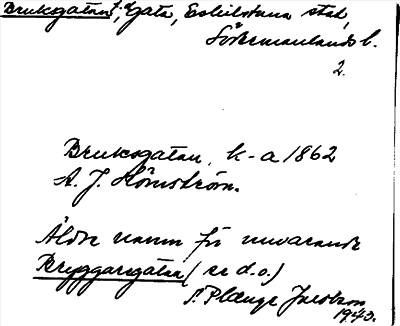 Bruksgatan†, gata, Eskilstuna stad,
Södermanlands l.
2.
Bruksgatan, k-a 1862
A. J. Hörnström.
Äldre namn för nuvarande
Bryggaregatan (se d.o.)
S. Plænge Jacobson
1940.